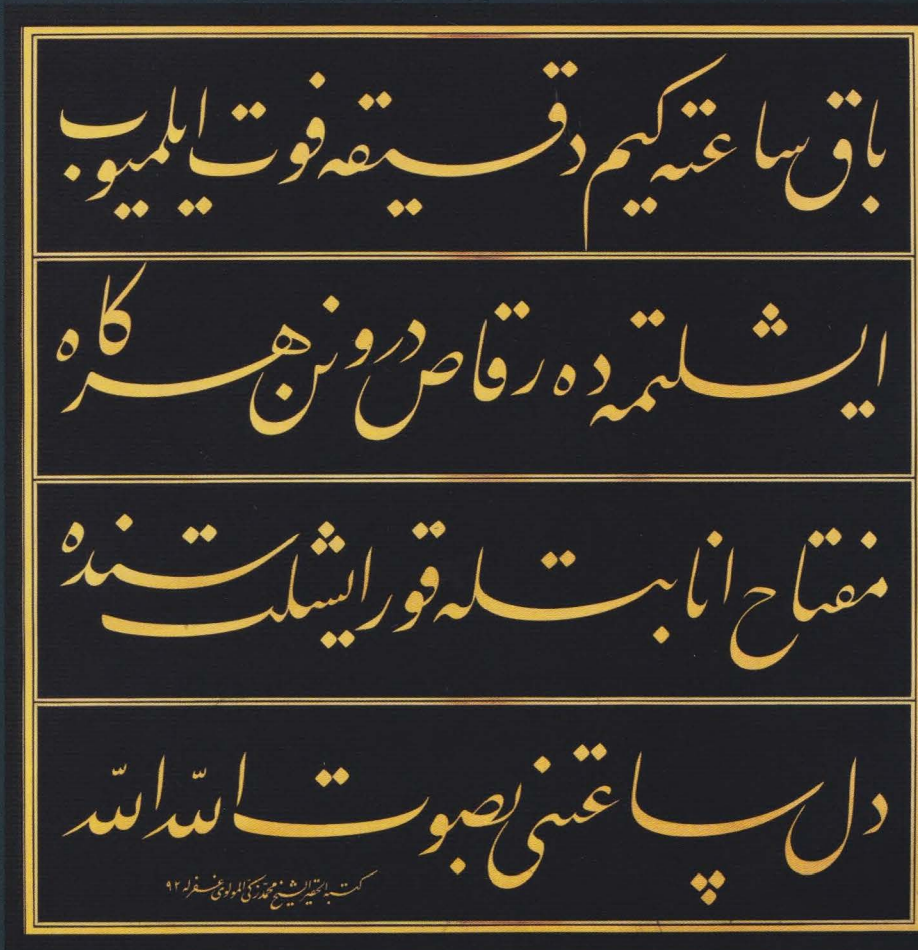 باق ساعته كيم دقيقه فوت ايلميوب
ايشلتمه ده رقاص درونن هر كاه
مفتاح انابتله قور ايشلت سنده
دل ساعتنى بصوت اللّه اللّه
كتبه الحقير الشيخ محمد زكى المولوى غفر له ٩٢